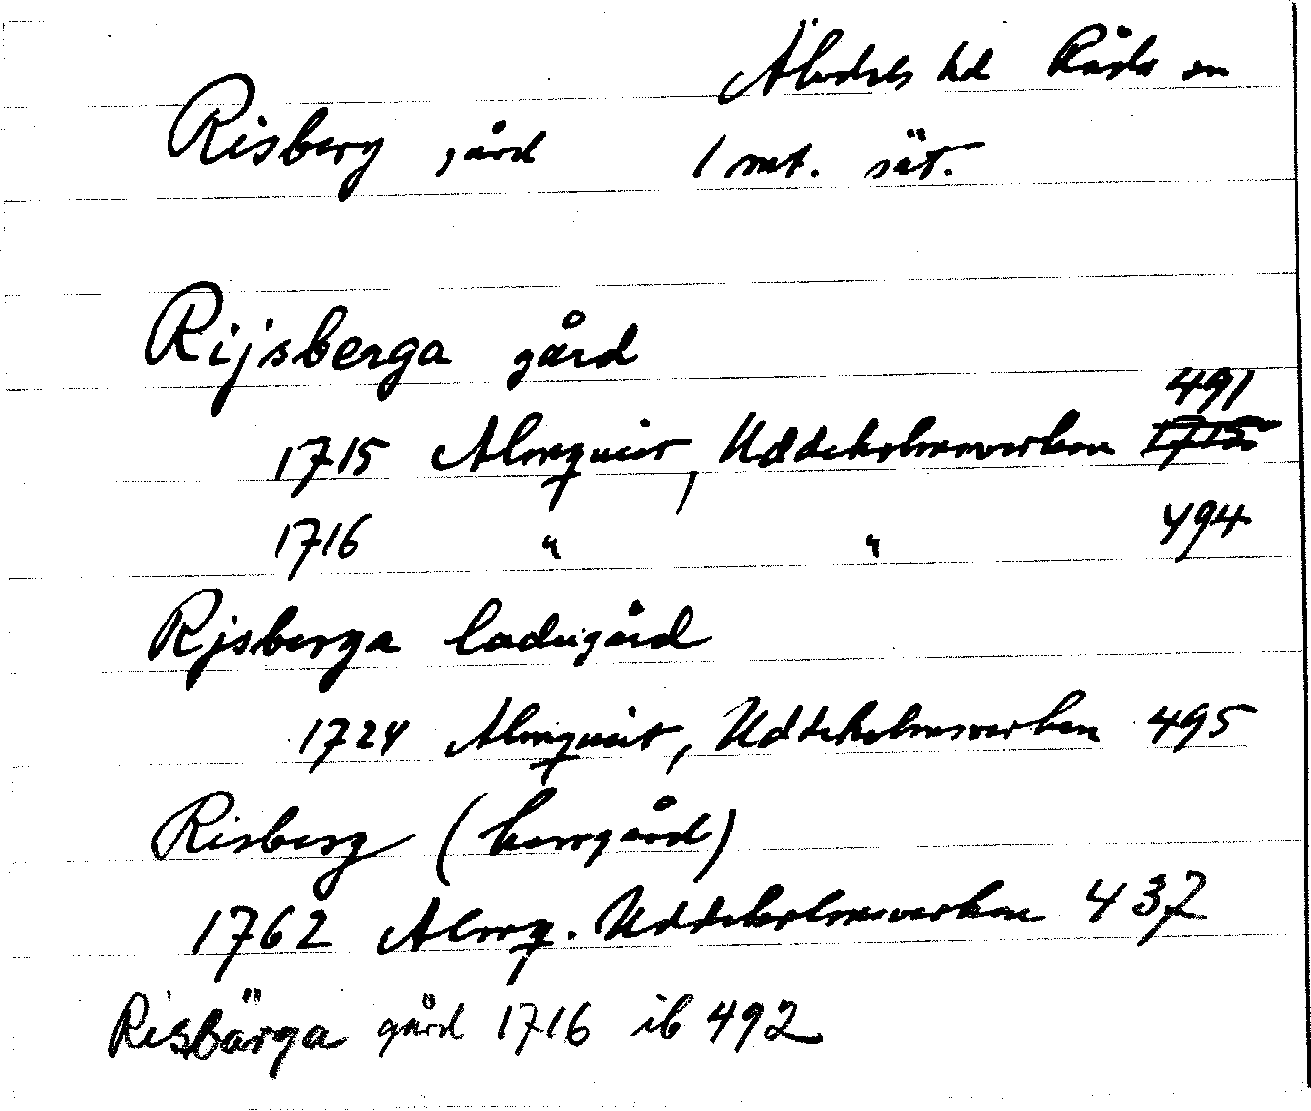 Älvdals hd Råda sn
Risberg gård 1 mt. sät.
Rijsberga gård
491
1715 Almquist, Uddeholmsverken 1715
1716 " " 494
Rjsberga ladugård
1724 Almquist, Uddeholmsverken 495
Risberg (herrgård)
1762 Almq. Uddeholmsverken 437
Risbärga gård 1716 ib 492